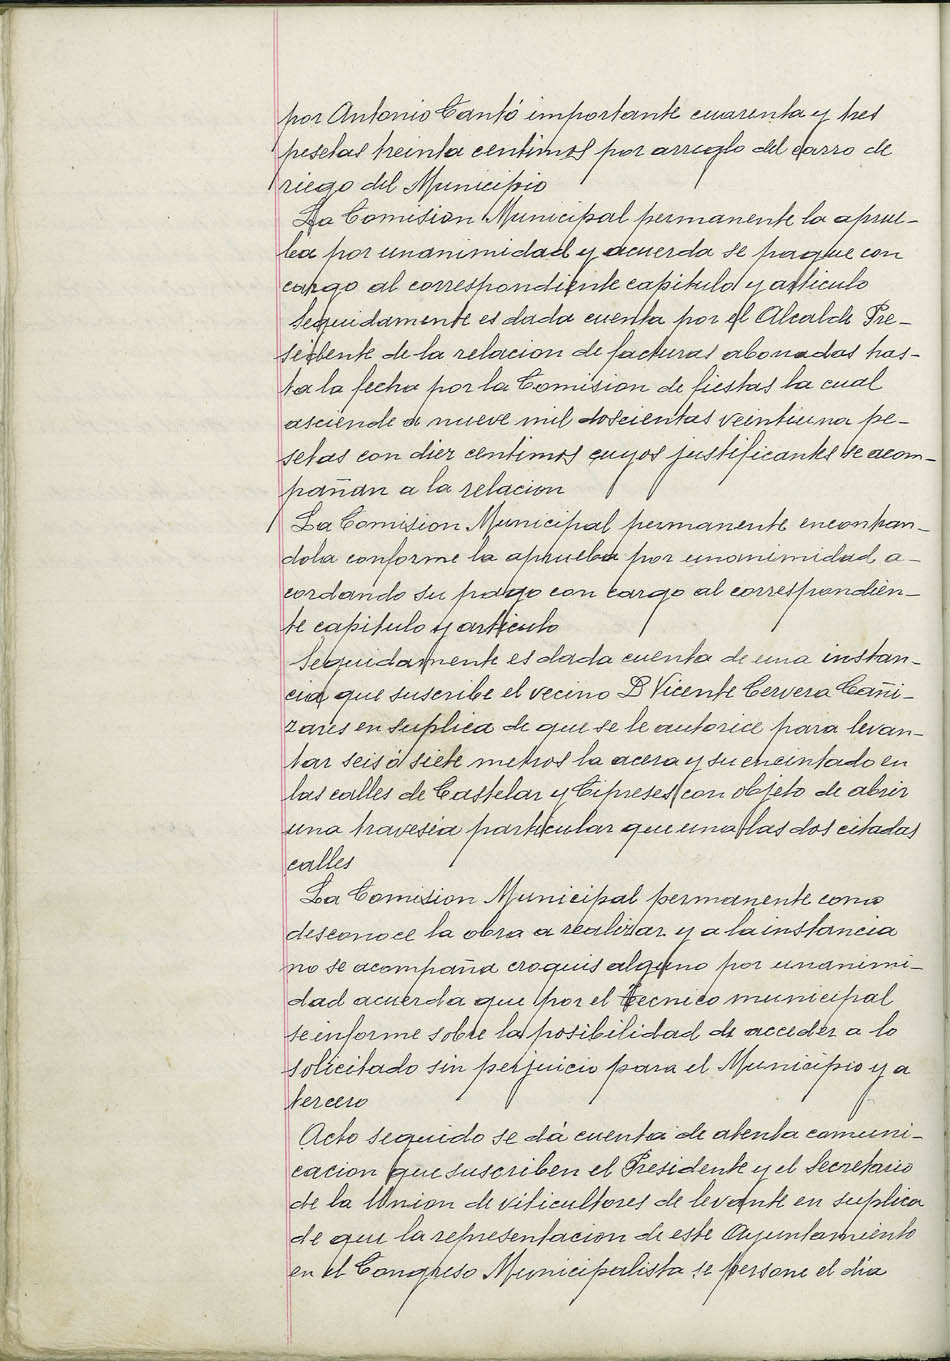 por Antonio Cantó importante cuarenta y tres
pesetas treinta centimos por arreglo del carro de
riego del Municipio
La Comision Municipal permanente la aprue-
ba por unanimidad y acuerda se pague con
cargo al correspondiente capitulo y articulo
Seguidamente es dada cuenta por el Alcalde Pre-
sidente de la relacion de facturas abonadas has-
ta la fecha por la Comision de fiestas la cual
asciende a nueve mil doscientas veintiuna pe-
setas con diez centimos cuyos justificantes se acom-
pañan a la relacion
La Comision Municipal permanente encontran-
dola conforme la aprueba por unanimidad a-
cordando su pago con cargo al correspondien-
te capitulo y articulo
Seguidamente es dada cuenta de una instan-
cia que suscribe el vecino D Vicente Cervera Cañi-
zares en suplica de que se le autorice para levan-
tar seis ó siete metros la acera y su encintado en
las calles de Castelar y Cipreses con objeto de abrir
una travesia particular que una las dos citadas
calles
La Comision Municipal permanente como
desconoce la obra a realizar y a la instancia
no se acompaña croquis alguno por unanimi-
dad acuerda que por el tecnico municipal
se informe sobre la posibilidad de acceder a lo
solicitado sin perjuicio para el Municipio y a
tercero
Acto seguido se dá cuenta de atenta comuni-
cacion que suscriben el Presidente y el Secretario
de la Union de viticultores de levante en suplica
de que la representacion de este Ayuntamiento
en el Congreso Municipalista se persone el dia